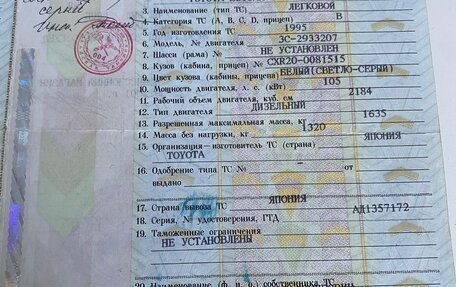 серии
3. Наименование (тип ТС) ЛЕГКОВОЙ
4. Категория ТС (А, В, С, D, прицеп) B
5. Год изготовления ТС 1995
6. Модель, № двигателя 3C-2933207
7. Шасси (рама) № НЕ УСТАНОВЛЕН
8. Кузов (кабина, прицеп) № CXR20-0081515
9. Цвет кузова (кабины, прицепа) БЕЛЫЙ(СВЕТЛО-СЕРЫЙ)
10. Мощность двигателя, л. с. (кВт) 105
11. Рабочий объем двигателя, куб. см 2184
12. Тип двигателя ДИЗЕЛЬНЫЙ
13. Разрешенная максимальная масса, кг 1635
14. Масса без нагрузки, кг 1320
15. Организация-изготовитель ТС (страна) ЯПОНИЯ
TOYOTA
16. Одобрение типа ТС № –
выдано
17. Страна вывоза ТС ЯПОНИЯ
18. Серия, № удостоверения, ГТД АД1357172
19. Таможенные ограничения
НЕ УСТАНОВЛЕНЫ
20. Наименование (ф. и. о.) собственника, ТС